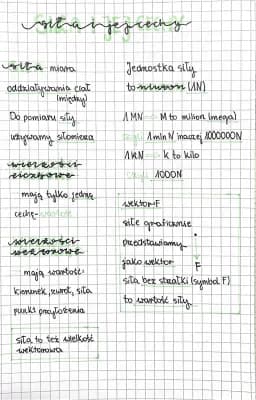 siła i jej cechy
siła miara
oddziaływania ciał
(między)
Do pomiaru siły
używamy siłomierza
wielkości
skalarne
mają tylko jedną
cechę - wartość
wielkości
wektorowe
mają wartość
kierunek, zwrot, siła
punkt przyłożenia
siła to też wielkość
wektorowa
Jednostka siły
to niuton (1N)
1 MN → M to milion (mega)
czyli 1 mln N inaczej 1000000N
1 kN → k to kilo
czyli 1000N
wektor F
siłę graficznie
przedstawiamy
jako wektor F
siła bez strzałki (symbol F)
to wartość siły